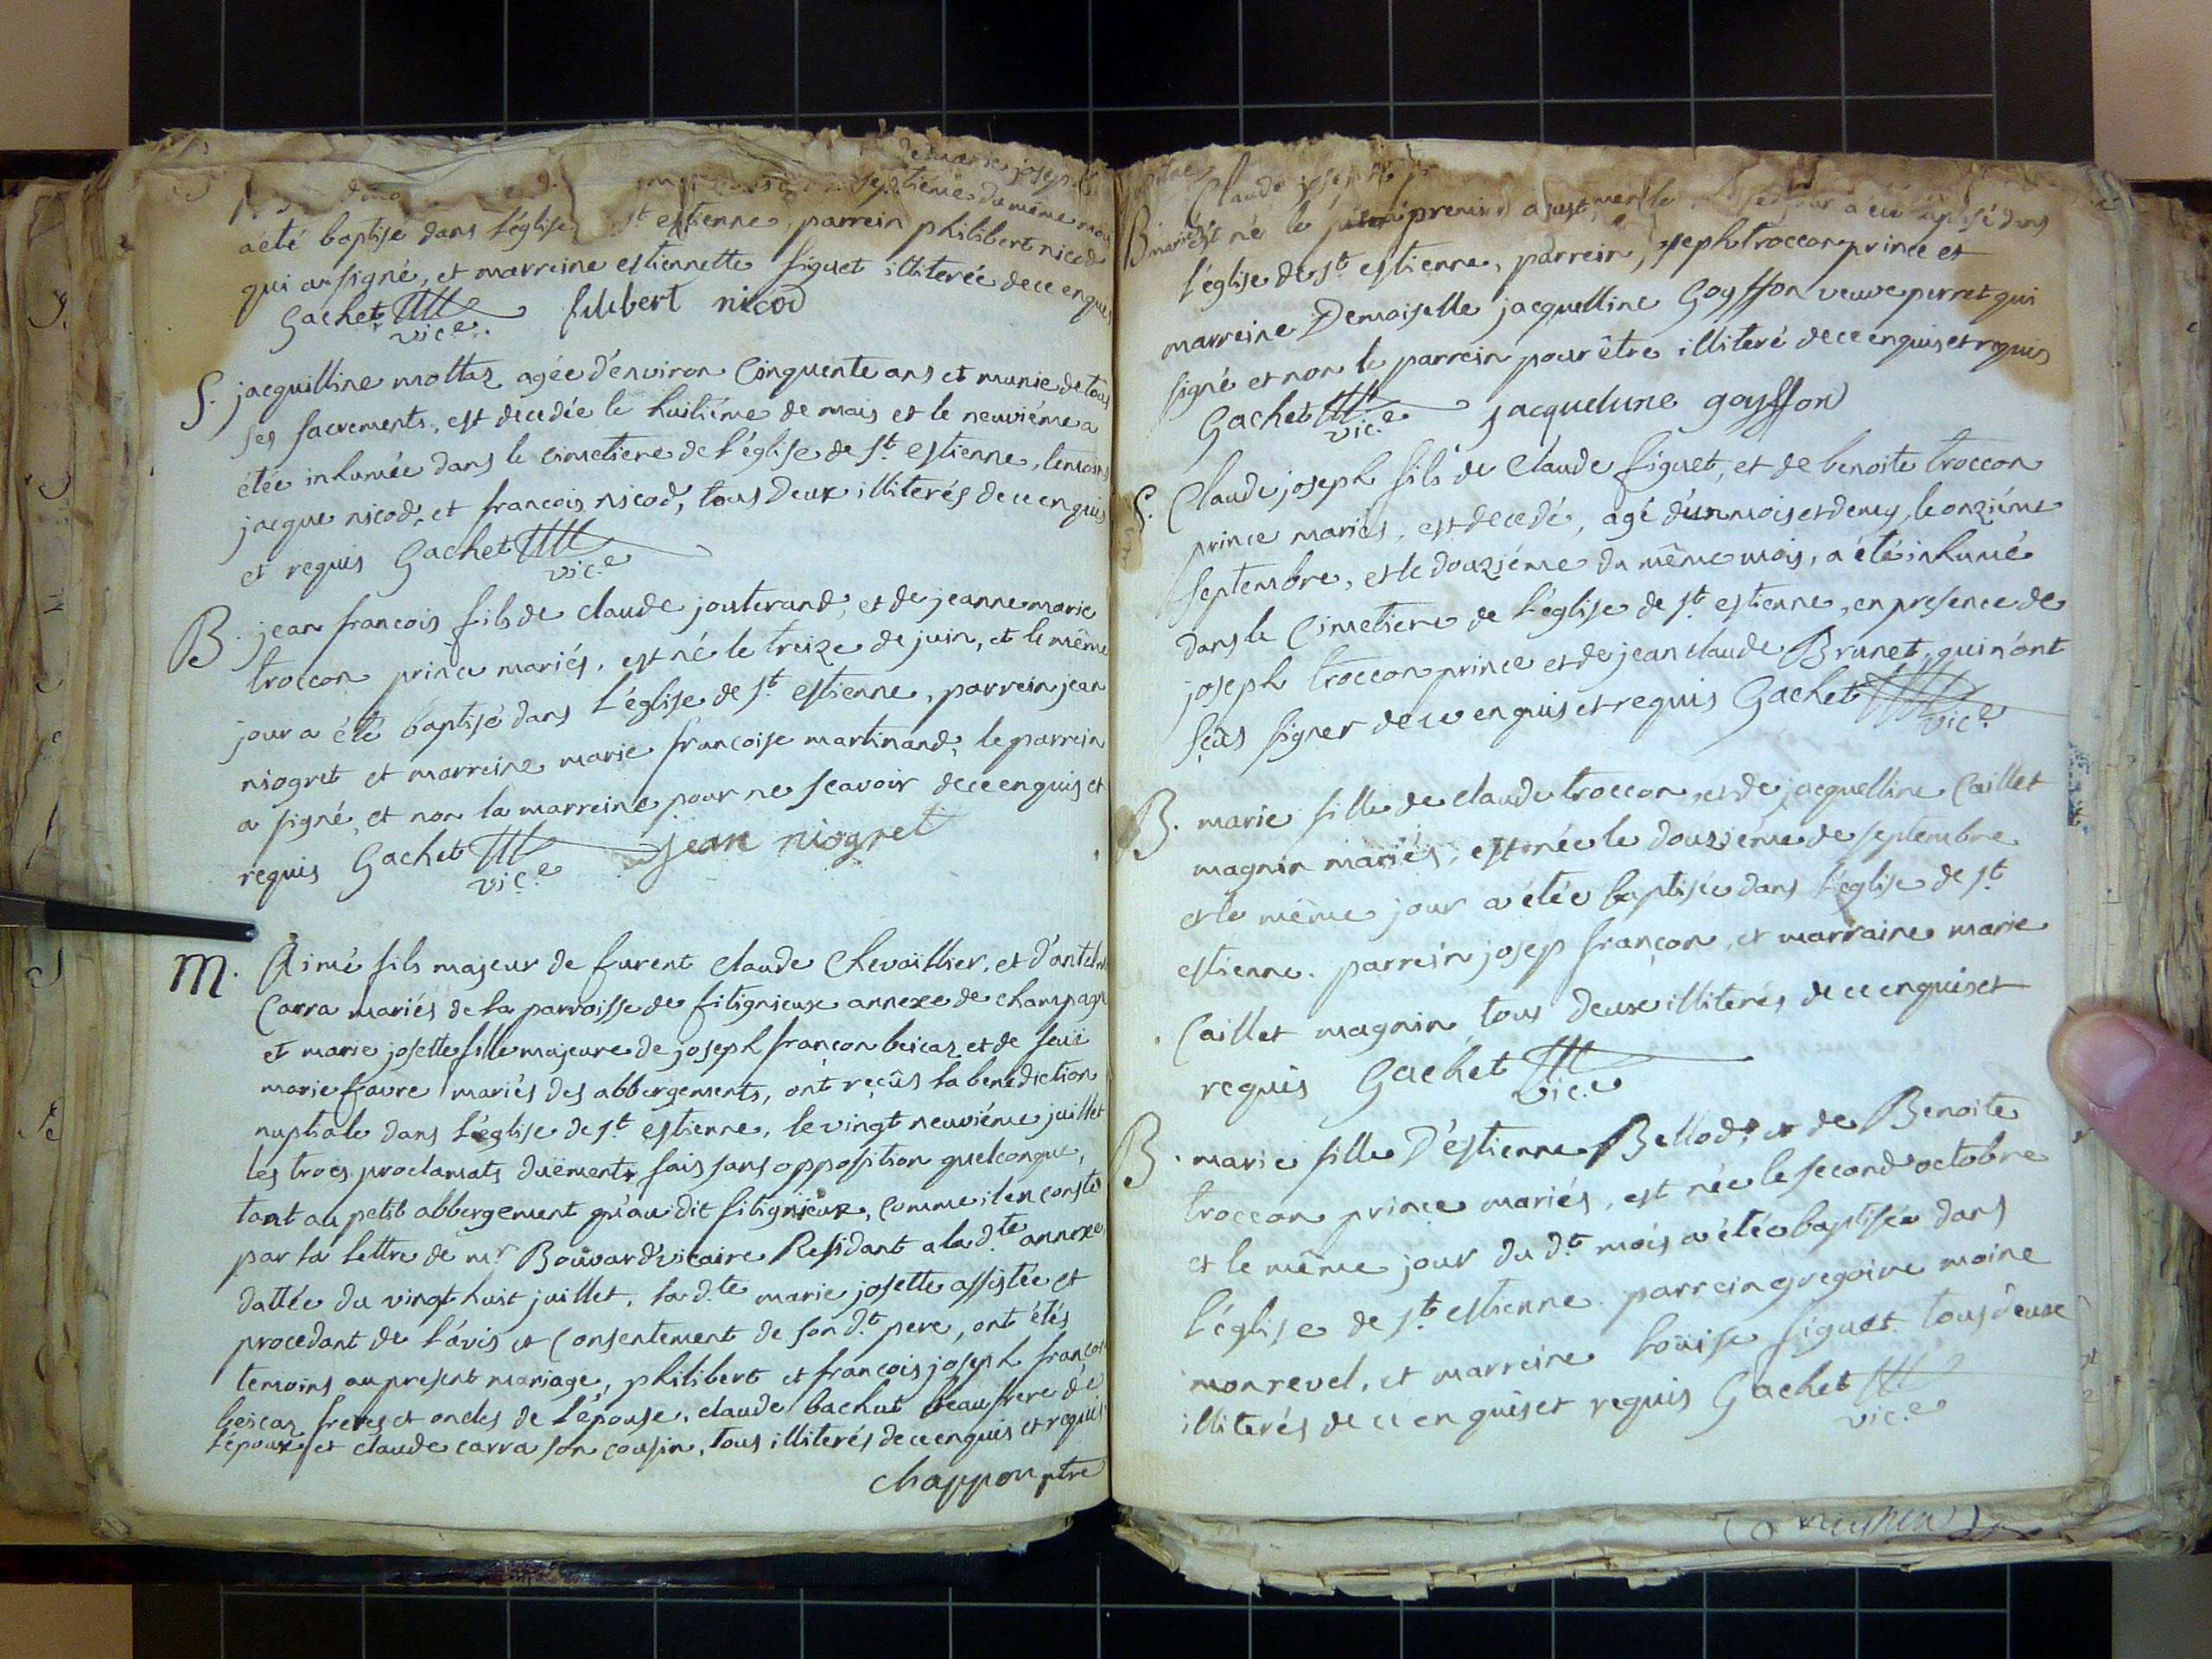 de marie joseph
septiéme du même mois
a été baptisé dans l'église st estienne, parrein philibert nicod
qui a signé, et marreine estiennette figuet illiterée de ce enquis
Gachet vic.e filibert nicod
S. jacquilline mottaz agée d'environ Cinquente ans et munie de tous
ses sacrements, est decedée le huitiéme de mais et le neuviéme a
étée inhumée dans le cimetiere de l'église de st. estienne, temoins
jacque nicod, et francois nicod, tous Deux illiterés de ce enquis
et requis Gachet vic.e
B. jean francois fils de claude jouterand, et de jeanne marie
troccon prince mariés, est né le treize de juin, et le même
jour a été baptisé dans l'église de st. estienne, parrein jean
niogret et marreine marie francoise martinand, le parrein
a signé, et non la marreine pour ne scavoir de ce enquis et
requis Gachet vic.e jean niogret
M. Aimé fils majeur de furent claude Chevaillier, et d'antel
Carra mariés de la parroisse de fitignieux annexe de champagn
et marie josette fille majeure de joseph françon beicaz et de feuë
marie favre mariés des abbergements, ont reçûs la benediction
nuptiale dans l'église de st. estienne, le vingt neuviéme juillet
les trois proclamats duëments fais sans opposition quelconque,
tant au petit abbergement qu'au dit fitignieux, comme il en conste
par la lettre de mr. Bouvard vicaire Residant a la d.te annexe
dattée du vingt huit juillet, la d.te marie josette assistée et
procedant de l'avis et Consentement de son d.t pere, ont étés
temoins au present mariage, philibert et francois joseph françon
beicaz freres et oncles de l'épouse, claude bachut beaufrere de
l'époux et claude carra son cousin, tous illiterés de ce enquis et requis
chappon ptre
Claude joseph
B. mariés est né le premier a été baptisé dans
l'église de st. estienne, parrein joseph troccon prince et
marreine Demoiselle jacquelline Goyffon veuve perret qui
signé et non le parrein pour être illiteré de ce enquis et requis
Gachet vic.e jacqueline goyffon
S. Claude joseph fils de Claude figuet, et de benoite troccon
prince mariés, est decedé, agé d'un mois et demy, le onziéme
septembre, et le douziéme du même mois, a été inhumé
dans le Cimetiere de l'église de st. estienne, en presence de
joseph troccon prince et de jean claude Brunet, qui n'ont
sçûs signer de ce enquis et requis Gachet vic.e
B. marie fille de claude troccon, et de jacquelline Caillet
magnin mariés, est née le douziéme de septembre
et le même jour a étée baptisée dans l'eglise de st.
estienne. parrein josep françon, et marraine marie
Caillet magnin, tous Deux illiterés de ce enquis et
requis Gachet vic.e
B. marie fille D'estienne Bellod, et de Benoite
troccon prince mariés, est née le second octobre
et le même jour du d.t mois a étée baptisée dans
l'église de st. estienne parrein gregoire moine
monrevel, et marreine Loüise figuet tous deux
illiterés de ce enquis et requis Gachet vic.e